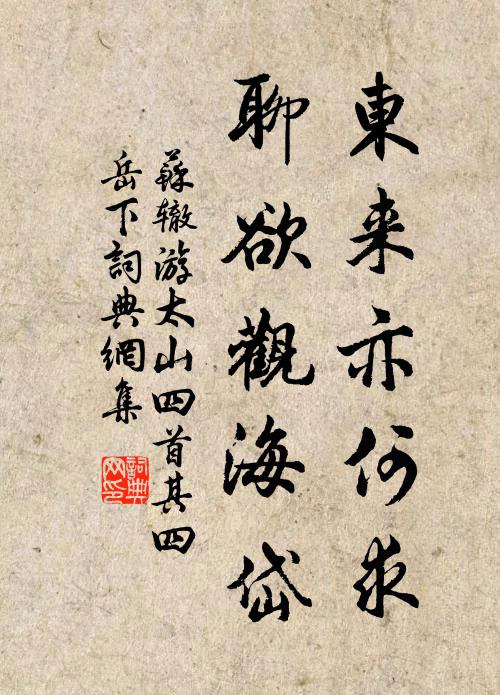 東来亦何求
聊欲觀海岱
蘇辙游太山四首其四
岳下詞典網集
詞典网印